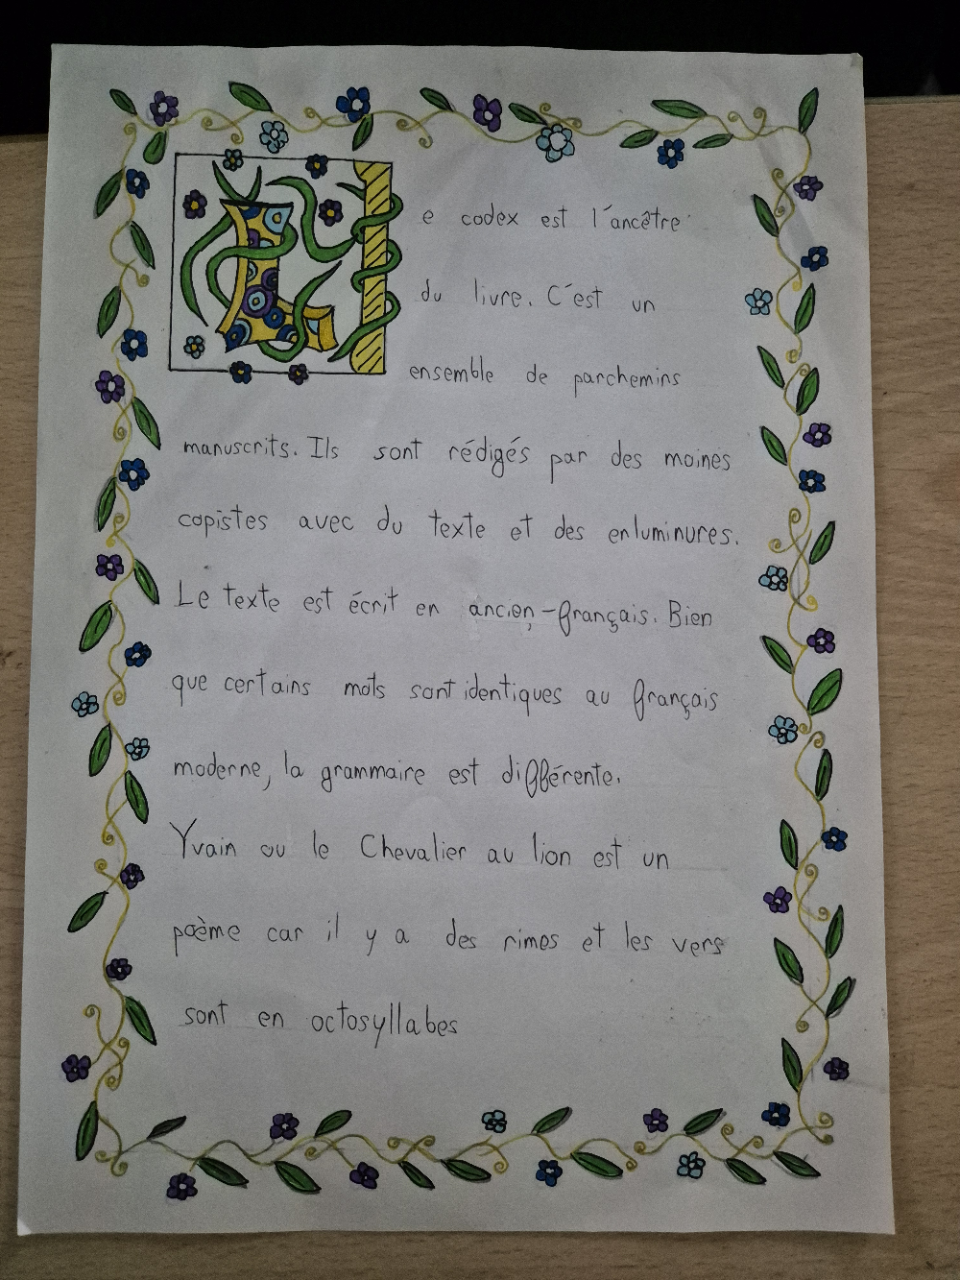 Le codex est l'ancêtre
du livre. C'est un
ensemble de parchemins
manuscrits. Ils sont rédigés par des moines
copistes avec du texte et des enluminures.
Le texte est écrit en ancien-français. Bien
que certains mots sont identiques au français
moderne, la grammaire est différente.
Yvain ou le Chevalier au lion est un
poème car il y a des rimes et les vers
sont en octosyllabes